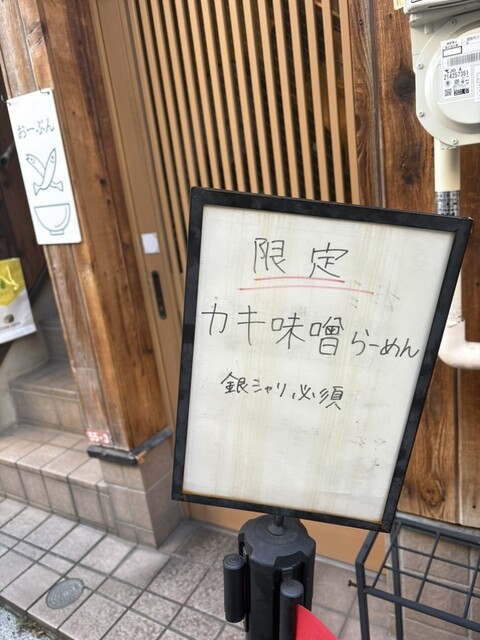 おーぷん
限定
カキ味噌らーめん
銀シャリ必須
55-3